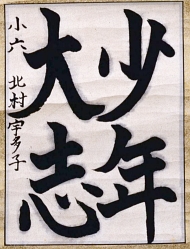 少年
大志
小六 北村宇多子